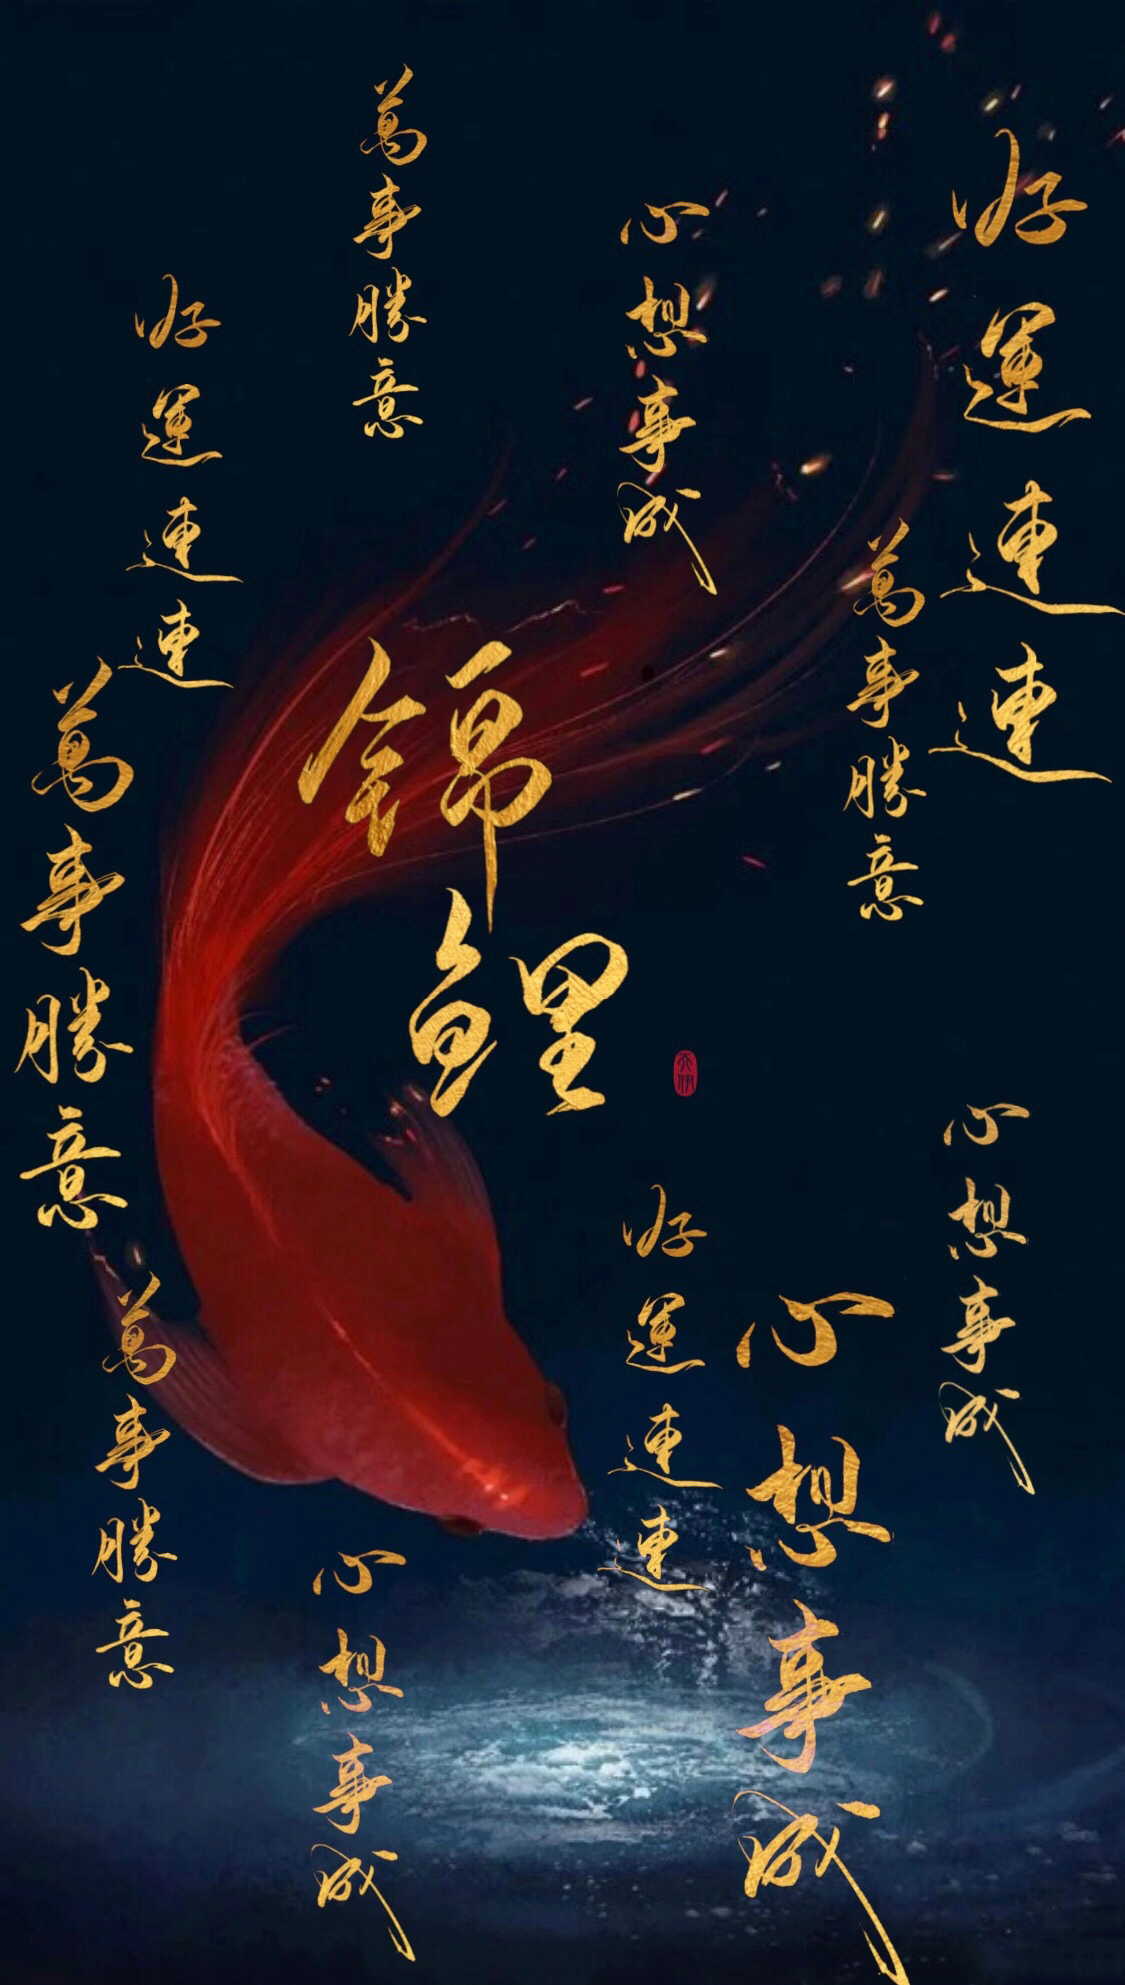 好運連連
萬事勝意
心想事成
萬事勝意
好運連連
錦鯉
萬事勝意
心想事成
好運連連
心想事成
萬事勝意
心想事成